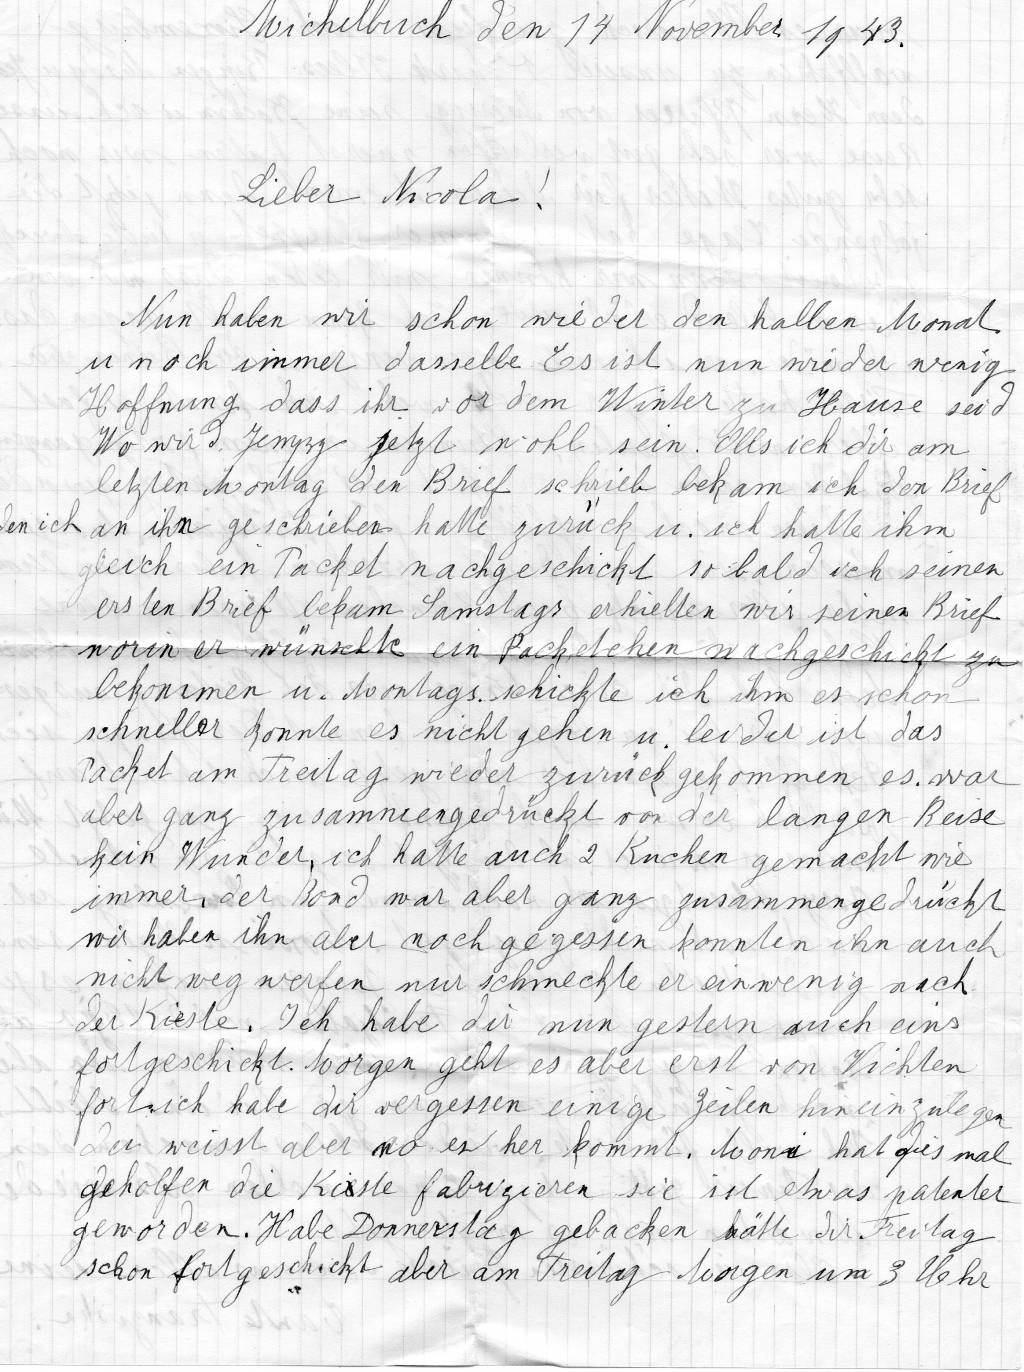 Michelbuch den 14 November 1943.
Lieber Nicola!
Nun haben wir schon wieder den halben Monat
u noch immer dasselbe Es ist nun wieder wenig
Hoffnung dass ihr vor dem Winter zu Hause seid
Wo wird jetzt wohl sein. Als ich dir am
letzten Montag den Brief schrieb bekam ich den Brief
den ich an ihn geschrieben hatte zurück u. ich hatte ihm
gleich ein Packet nachgeschickt sobald ich seinen
ersten Brief bekam Samstags erhielten wir seinen Brief
worin er wünschte ein Packetchen nachgeschickt zu
bekommen u. Montags. schickte ich ihm es schon
schneller konnte es nicht gehen u. leider ist das
Packet am Freitag wieder zurück gekommen es. war
aber ganz zusammengedrückt von der langen Reise
kein Wunder, ich hatte auch 2 Kuchen gemacht wie
immer, der Bond war aber ganz zusammengedrückt
wir haben ihn aber noch gegessen konnten ihn auch
nicht weg werfen nur schmeckte er einwenig nach
der Kieste. Ich habe dir nun gestern auch eins
fortgeschickt. Morgen geht es aber erst von Vichten
fort. ich habe dir vergessen einige Zeilen hineinzulegen
du weisst aber wo es her kommt. Moni hat diesmal
geholfen die Kieste fabrizieren sie ist etwas patenter
geworden. Habe Donnerstag gebacken hätte dir Freitag
schon fortgeschickt aber am Freitag Morgen um 3 Uhr